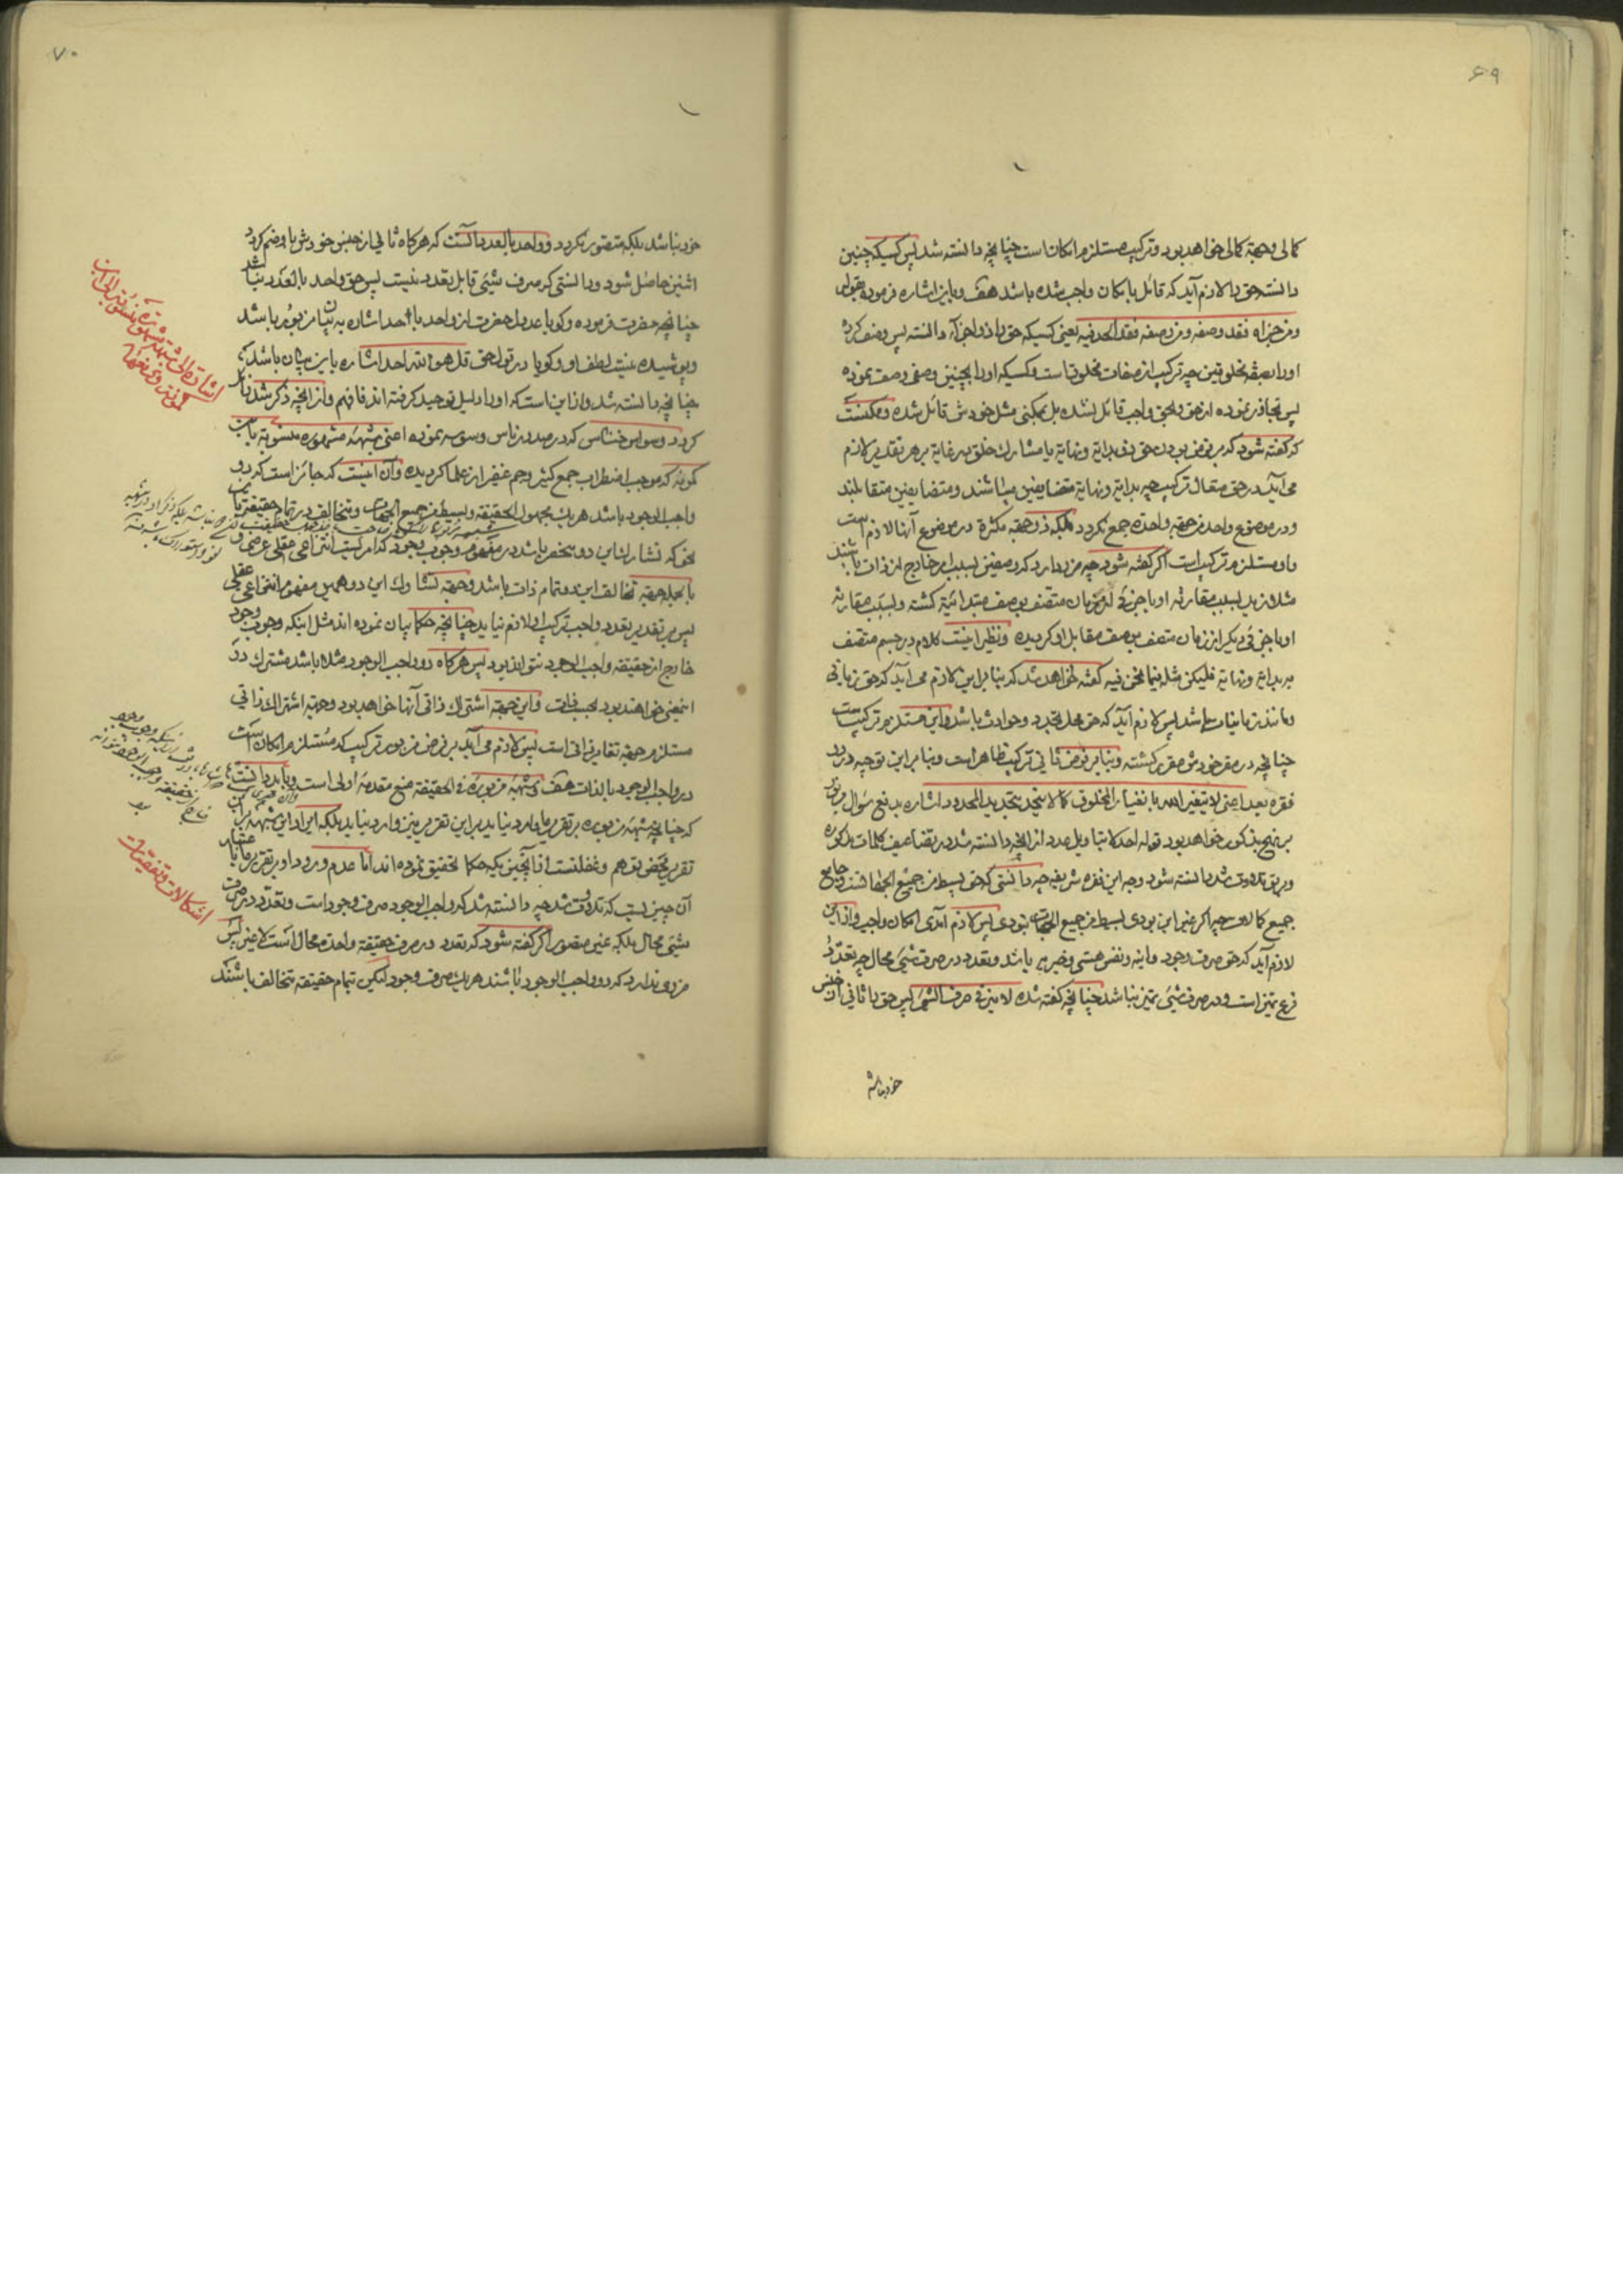 ۶۹
کمالی وجهة کمالی خواهد بود و ترکیب مستلزم امکان است چنانچه دانسته شد پس کسیکه چنین
دانست حق را لازم آید که قائل بامکان واجب شده باشد هف و باین اشاره فرموده بقوله
ومن جزاه فقد وصفه ومن وصفه فقد الحد فیه یعنی کسیکه حق را ذو اجزاء دانسته پس وصف کرده
او را بصفة مخلوقین چه ترکیب از صفات مخلوق است و کسیکه او را بچنین وصفی وصف نموده
پس تجاوز نموده از حق و بحق واجب قائل نشده بل بممکنی مثل خودش قائل شده و ممکنست
که گفته شود که بر فرض بودن حق ذو بدایة و نهایة یا مشارک خلق در غایة بر هر تقدیر لازم
می آید در حق متعال ترکیب چه بدایة و نهایة متضایفین میباشند و متضایفین متقابلند
و در موضوع واحد من جهة واحدة جمع نگردد بلکه ذو جهة مکثرة در موضوع آنها لازم است
و او مستلزم ترکیب است اگر گفته شود چه ضرر دارد که وصفین بسبب امر خارج از ذات باشند
مثلا زید بسبب مقارنه او با جزئی از زمان متصف بوصف مبتدائیة گشته و بسبب مقارنه
او با جزئی دیگر از زمان متصف بوصف مقابل او گردیده و نظیر اینست کلام در جسم متصف
به بدایة و نهایة فلیکن مثله فیما نحن فیه گفته خواهد شد که بنابر این لازم می آید که حق زمانی
و مانند زمانیات باشد پس لازم آید که حق محل تجدد و حوادث باشد و این مستلزم ترکیب است
چنانچه در مقر خودش مقرر گشته و بنابر فرض ثانی ترکیب ظاهر است و بنابر این توجیه در رد
فقره بعد اعنی لا یتغیر الله بانغیار المخلوق کما لا یتحد بتحدید المحدود اشاره بدفع سؤال مزبور
بر نهج مذکور خواهد بود قوله احد لا بتاویل عدد از آنچه دانسته شد در تضاعیف کلمات مذکوره
و بر تو تلاوت شد دانسته شود وجه این فقره شریفه چه دانستی که حق بسیط من جمیع الجهاتست و جامع
جمیع کمالات چه اگر غیر این بودی بسیط من جمیع الجهات نبودی پس لازم آمدی امکان واجب و از این
لازم آید که حق صرف وجود و انیه و نفس هستی و خیریه باشد و تعدد در صرف شئ محال چه تعدد
فرع تمیز است و در صرف شئ تمیز نباشد چنانچه گفته شده لا میز فی صرف الشئ پس حق را ثانی از جنس
خود نباشد
۷۰
خود نباشد بلکه متصور نگردد و واحد بالعدد آنست که هر گاه ثانی از جنس خودش با او ضم گردد
اثنین حاصل شود و دانستی که صرف شئ قابل تعدد نیست پس حق واحد بالعدد نباشد
چنانچه حضرت فرموده و گویا عدول حضرت از واحد با احد اشاره به بیان مزبور باشد
و پوشیده نیست لطف او و گویا در قول حق قل هو الله احد اشاره باین بیان باشد
چنانچه دانسته شد و از این است که او را دلیل توحید گرفته اند فافهم و از آنچه ذکر شد زائل
گردد وسواس خناس که در صدور ناس وسوسه نموده اعنی شبهه مشهوره منسوبه بابن
کمونه که موجب اضطراب جمع کثیر و جم غفیر از علما گردیده و آن اینست که جائز است که دو
واجب الوجود باشد هر یک مجهول الحقیقة و بسیط من جمیع الجهات و متخالف در تمام حقیقة
نحو که تشارک این دو منحصر باشد در مفهوم وجوب وجود که امریست انتزاعی عقلی عرضی
بالجمله جهة تخالف این دو تمام ذات باشد و جهة تشارک این دو همین مفهوم انتزاعی عقلی
پس بر تقدیر تعدد واجب ترکیب او لازم نیاید چنانچه حکما بیان نموده اند مثل اینکه وجوب وجود
خارج از حقیقة واجب الوجود نتواند بود پس هر گاه دو واجب الوجود مثلا باشد مشترک در
اینمعنی خواهند بود بحسب ذات و این جهة اشتراک ذاتی آنها خواهد بود و جهة اشتراک ذاتی
مستلزم جهة تغایر ذاتی است پس لازم می آید بر فرض مزبور ترکیب که مستلزم امکان است
در واجب الوجود بالذات هف شبهه مزبوره فی الحقیقة منع مقدمه اولی است و باید دانست
که چنانچه شبهه مزبوره بر تقریر ما وارد نیاید بر این تقریر نیز وارد نیاید بلکه ایراد این شبهه بر این
تقریر محض توهم و غفلتست از آنچیزیکه حکما تحقیق نموده اند اما عدم ورود او بر تقریر ما بنا
آن چیزیست که تلاوت شد چه دانسته شد که واجب الوجود صرف وجود است و تعدد در صرف
شئ محال بلکه غیر متصور اگر گفته شود که تعدد در صرف حقیقة واحده محال است لا غیر پس
ضرر ندارد که دو واجب الوجود باشند هر یک صرف وجود لیکن بتمام حقیقة متخالف باشند
اشارة الی شبهة مشهورة منسوبة الی ابن
کمونه و دفعها
اشکالات و تفصیات